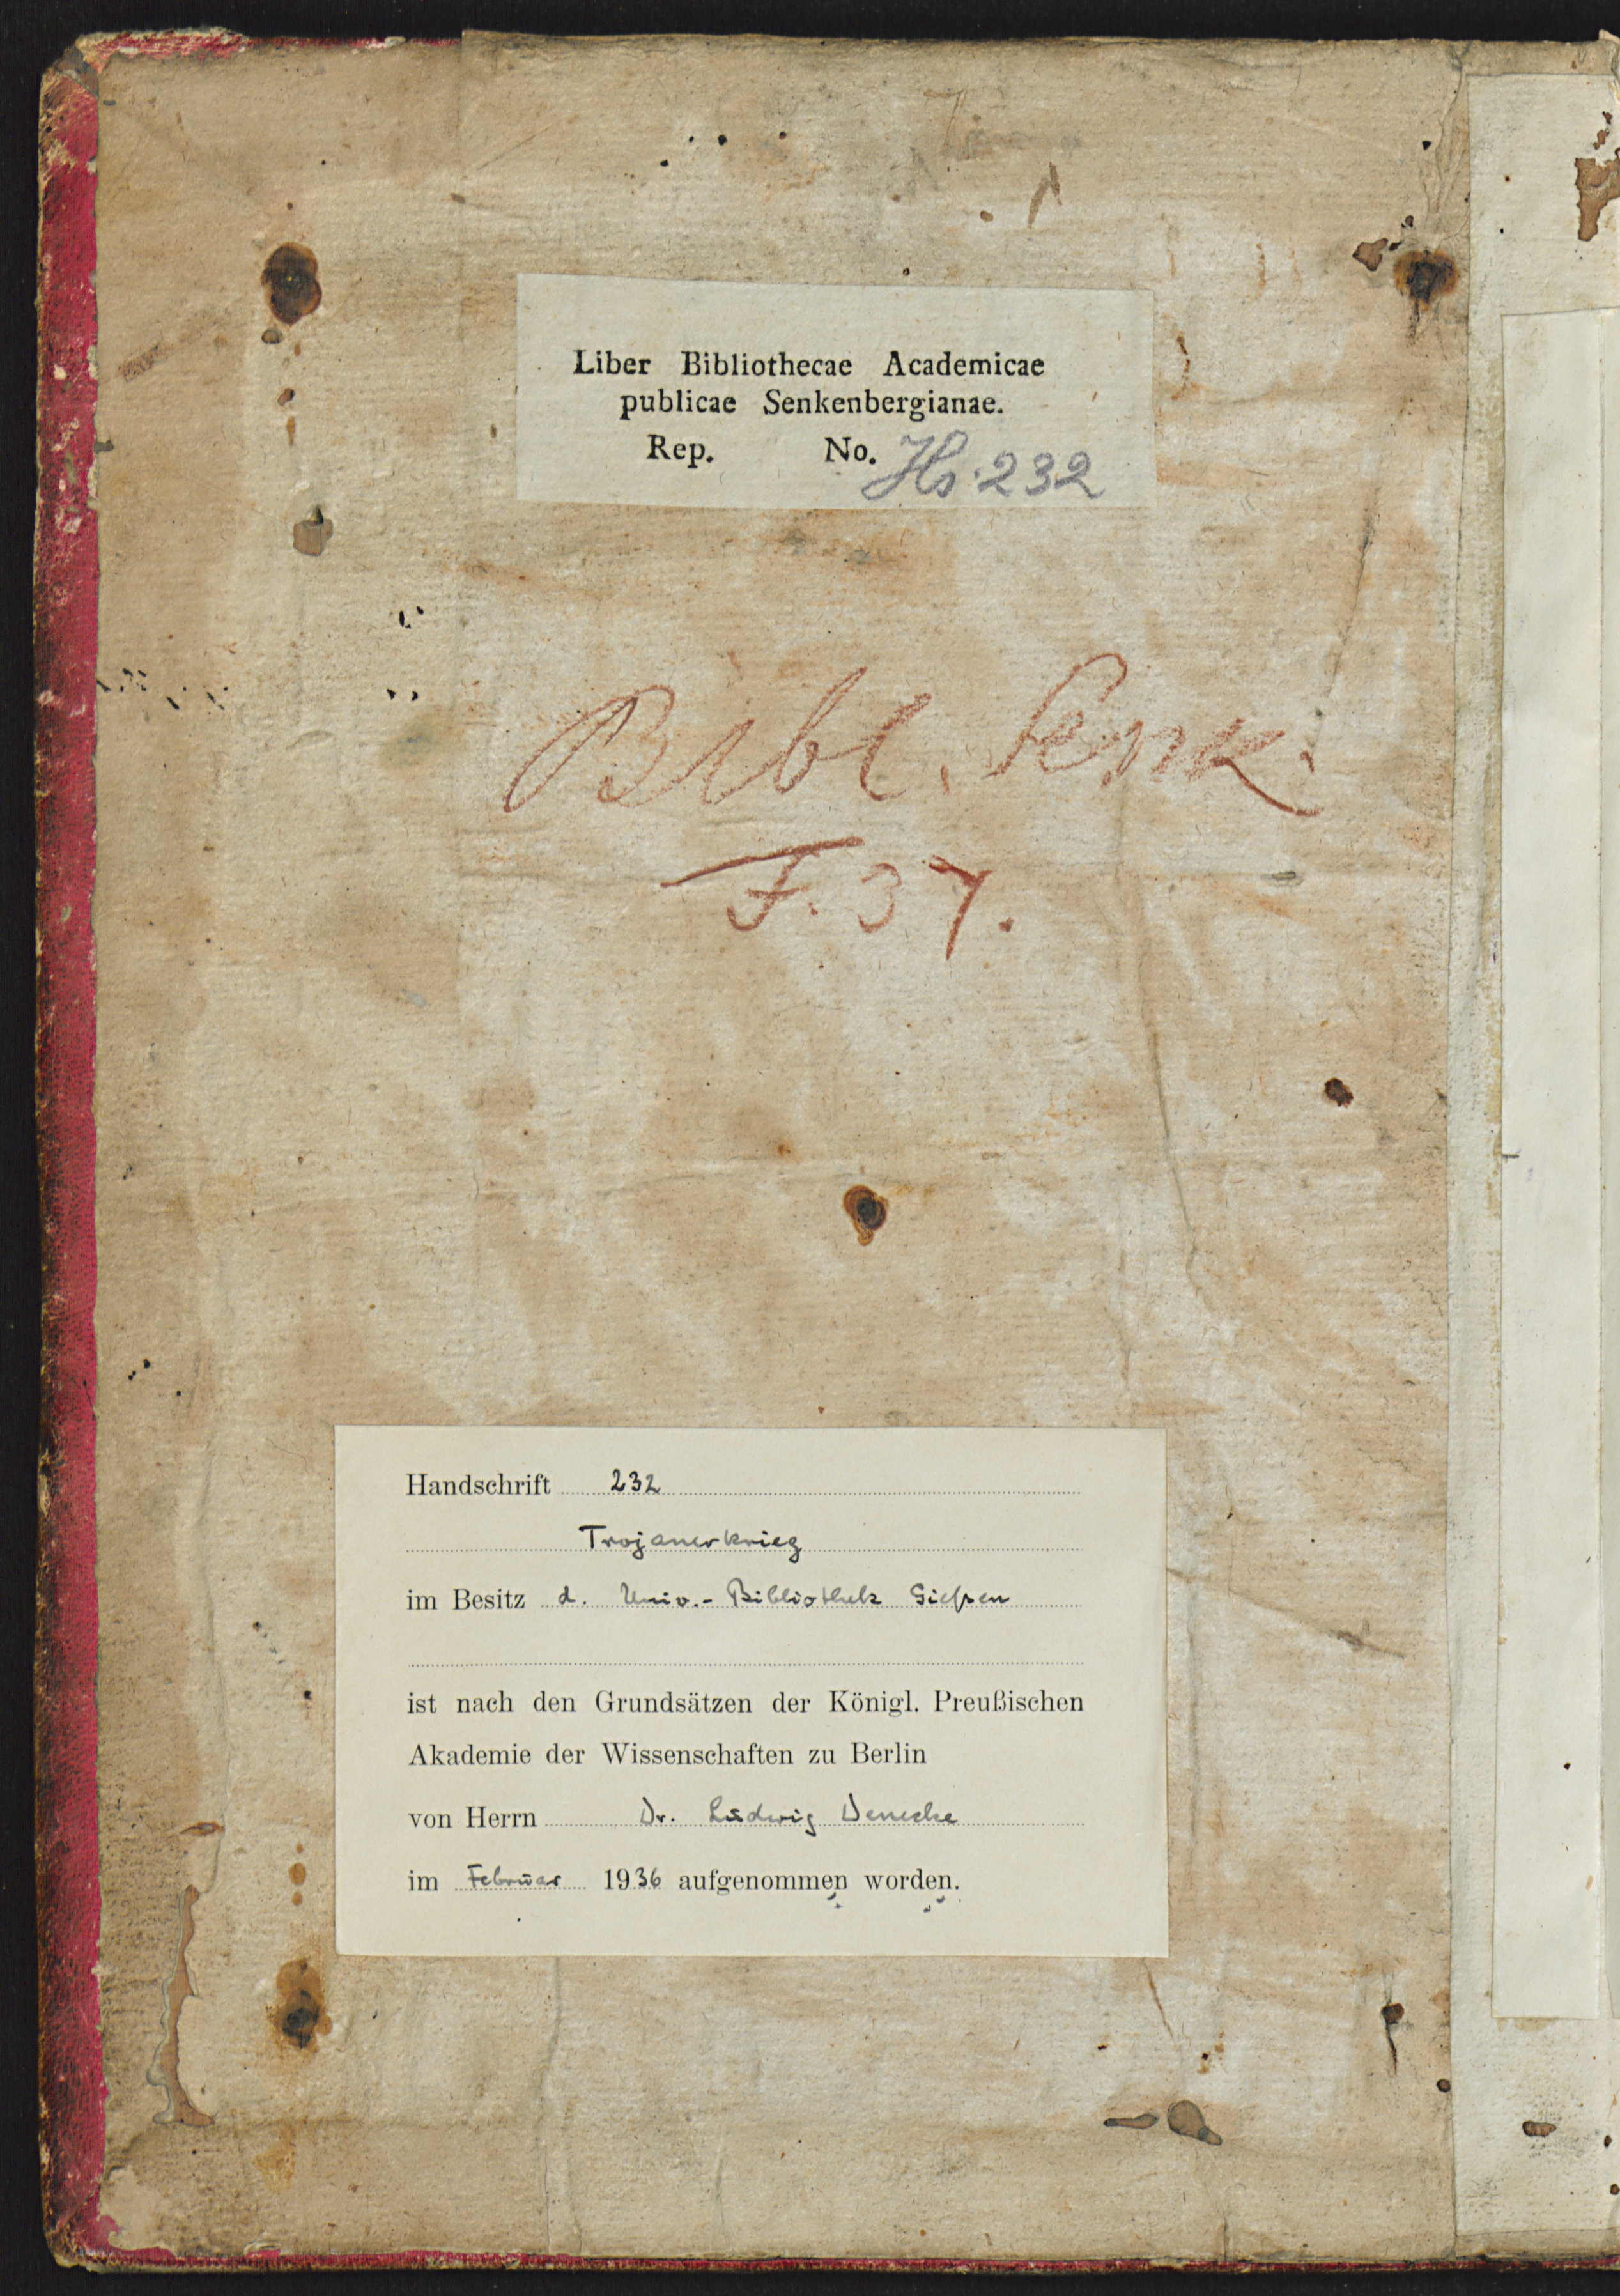 Liber Bibliothecae Academicae
publicae Senkenbergianae.
Rep. No. Hs. 232
Bibl. Senk.
F. 37.
Handschrift 232
Trojanerkrieg
im Besitz d. Univ.- Bibliothek Gießen
ist nach den Grundsätzen der Königl. Preußischen
Akademie der Wissenschaften zu Berlin
von Herrn Dr. Ludwig Denecke
im Februar 1936 aufgenommen worden.